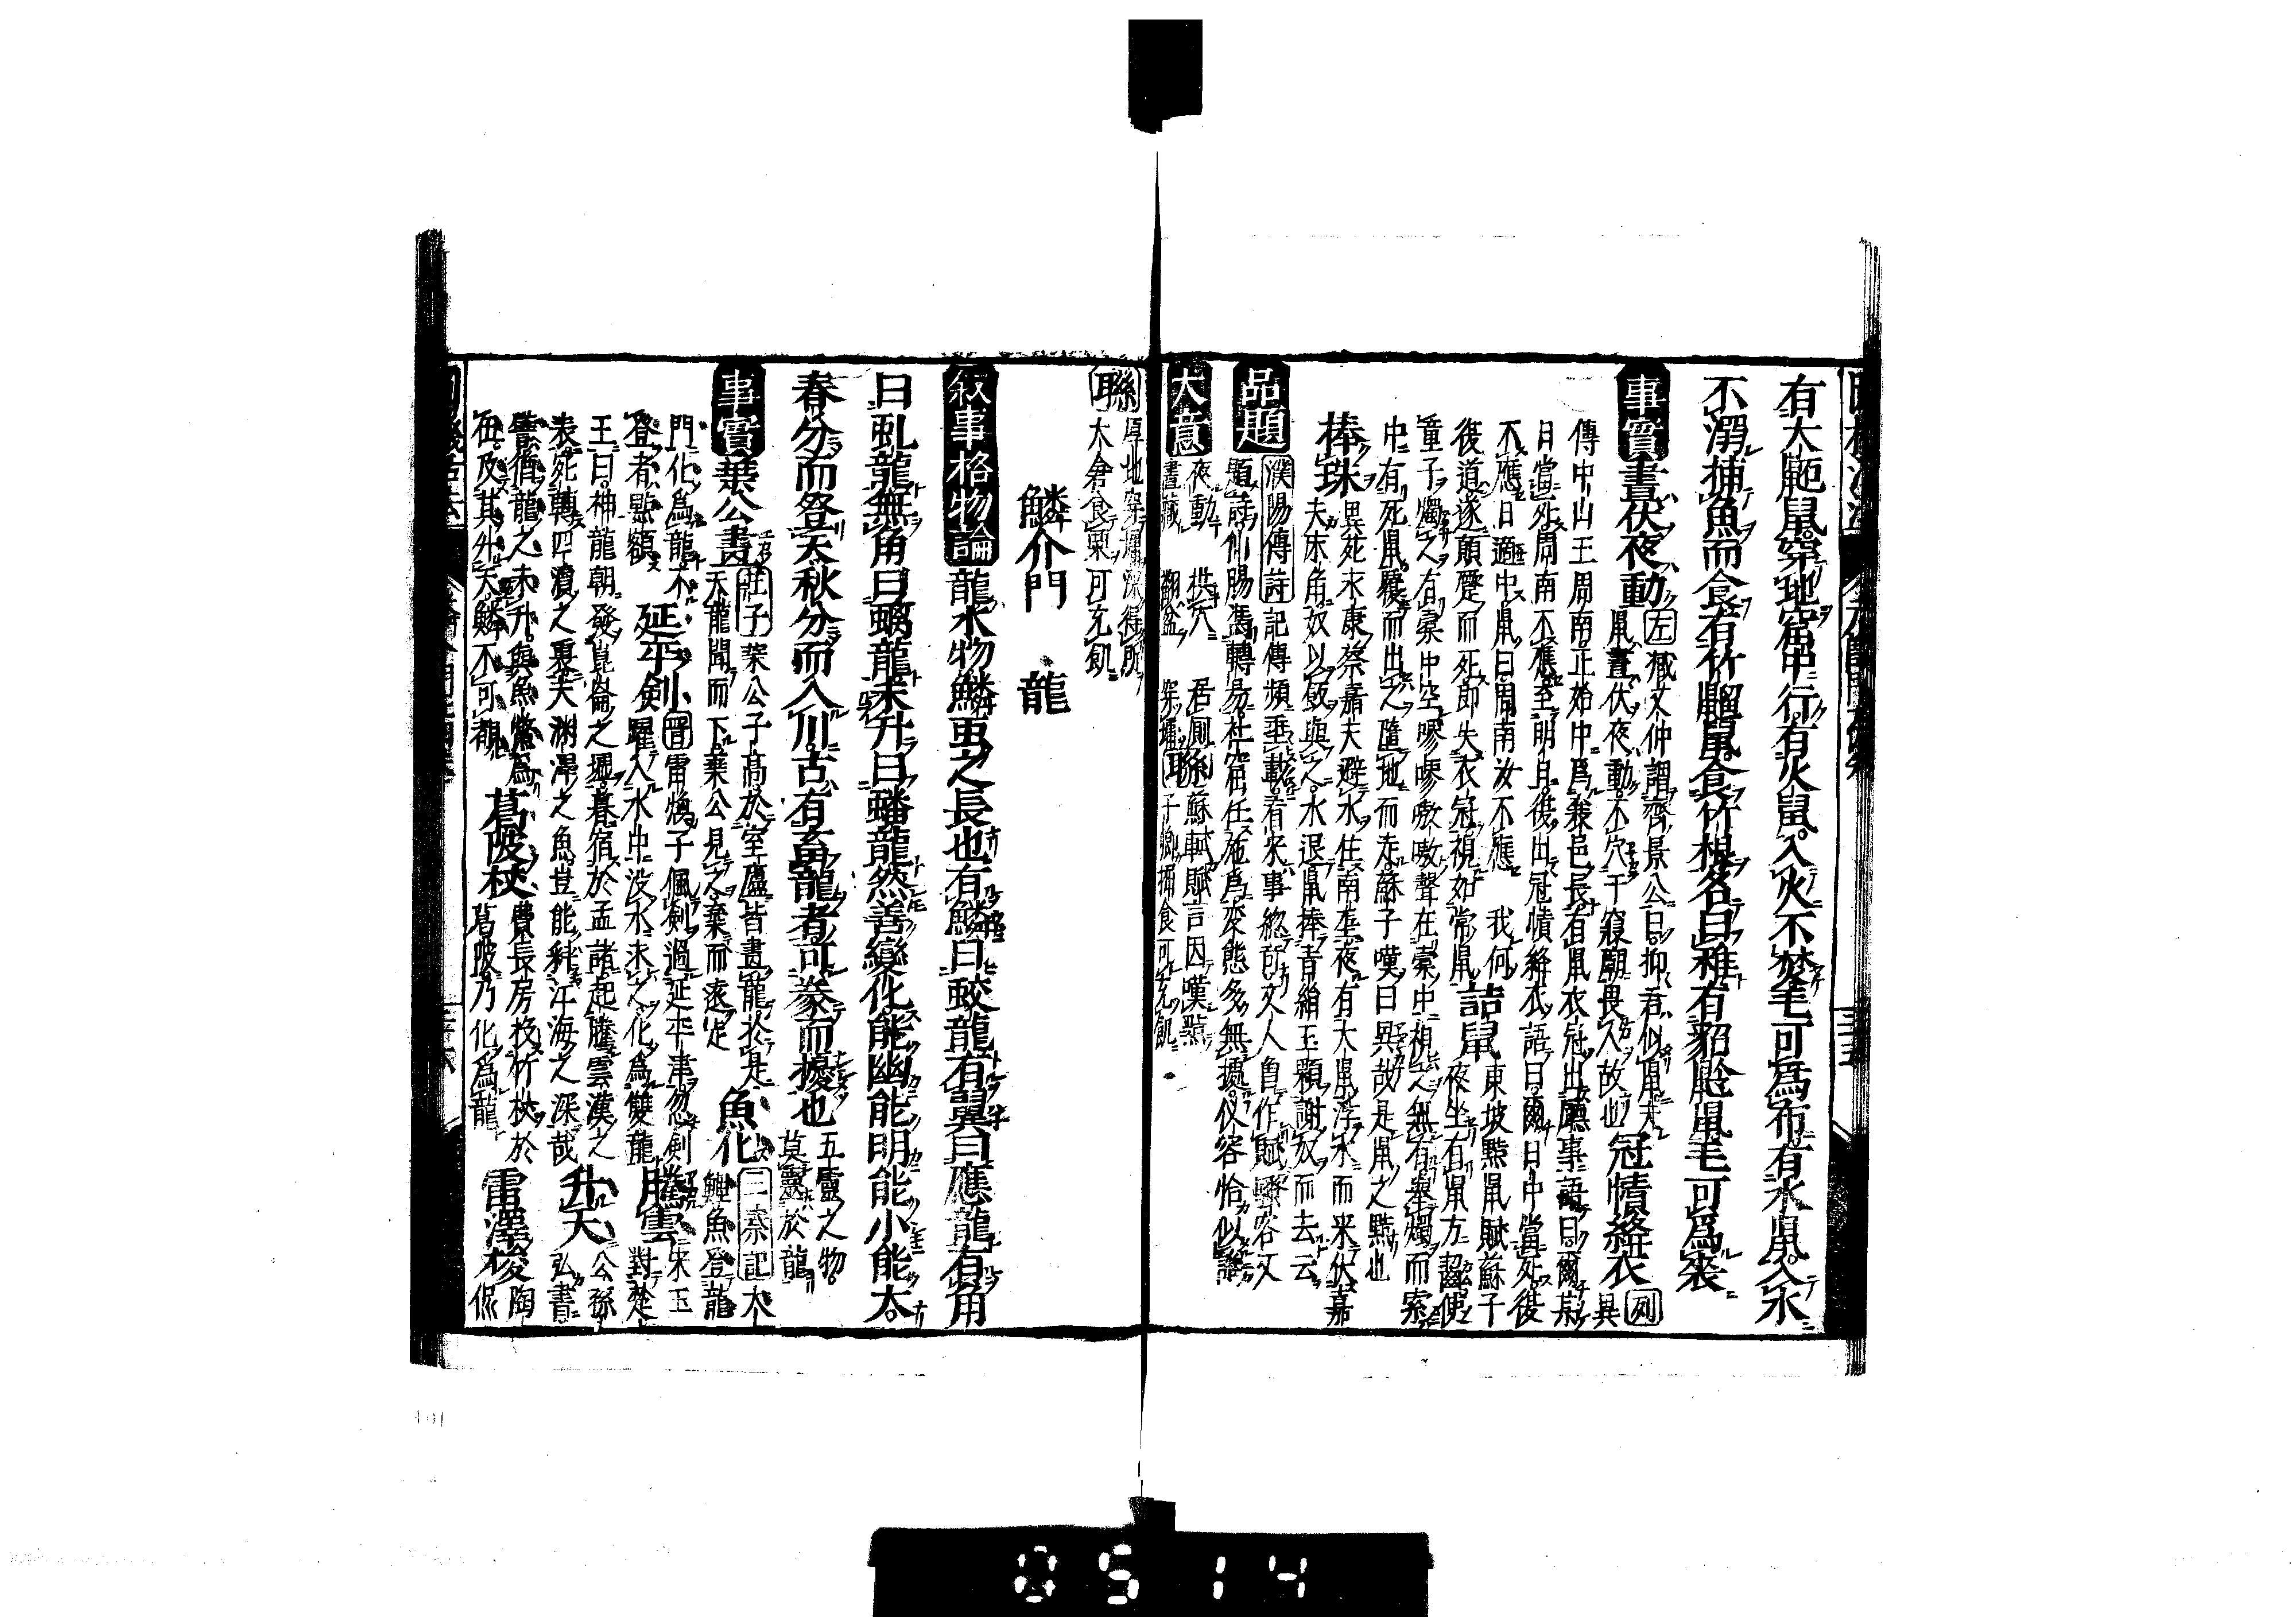 有大鼫鼠穿地窟中行有火鼠入火不焚毛可為布有水鼠入水
不溺捕魚而食有竹䶉鼠食竹根名曰稚有貂鼠毛可為裘
事實 晝伏夜動 左 臧文仲謂齊景公曰抑君似鼠夫
鼠晝伏夜動不穴于寢廟畏人故也 冠幘絳衣 列異
傳中山王周南正始中為襄邑長有鼠衣冠出廳事語曰爾某
日當死周南不應至明日後出冠幘絳衣語曰爾日中當死復
不應日適中鼠曰周南汝不應我何
後道遂顛蹙而死即失衣冠視如常鼠 詰鼠 東坡黠鼠賦蘇子
夜坐有鼠方齧使
童子燭之有橐中空嘐嘐嗷嗷聲在橐中視之無有舉燭而索
中有死鼠覆而出之墮地而走蘇子嘆曰異哉是鼠之黠也
捧珠 異苑永康蔡嘉夫避水住南壟夜有大鼠浮水而来伏嘉
夫床角奴以飯與之水退鼠捧青絹玉顆謝奴而去云
品題 濮陽傳詩 記傳頻垂載看来事總奇文人自作賦驛客又
題詩仙腸憑轉易社窟任施為変態多無據仪容恰似誰
大意 夜動 拱穴 居厠 聯 蘇軾賦言因嘆黠
晝藏 翻盆 穿墉 耳 子卿捕食可充飢
聯 掉地穿墉深得所
耳 大倉食粟可充飢
鱗介門 龍
叙事格物論 龍水物鱗虫之長也有鱗曰蛟龍有翼曰應龍有角
曰虬龍無角曰螭龍未升曰蟠龍然善變化能幽能明能小能大
春分而登天秋分而入川古有畜龍者可豢而擾也 五靈之物
莫靈於龍
事實 葉公畫 莊子 葉公子高於室廬皆畫龍於是
天龍聞而下葉公見之棄而遂走 魚化 三秦記 大
鯉魚登龍
門化為龍不
登者點額 延平剑 晉 雷煥子佩剣過延平津忽剣
躍入水中没水求之化為雙龍 騰雲 宋玉
對楚
王曰神龍朝發崑崙之墟暮宿於孟諸起騰雲漢之
表死轉四瀆之裏夫渊潯之魚豈能料江海之深哉 升天 公孫
弘書
嘗猶龍之未升與魚鱉為
伍及其升天鱗不可覩 葛陂杖 費長房投竹杖於
葛陂乃化為龍 雷澤梭 陶
侃